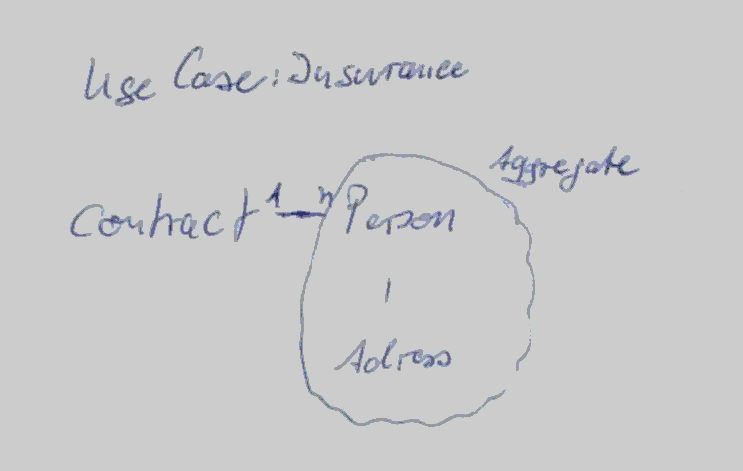 Use Case: Insurance
Aggregate
Contract 1 n Person
Adress